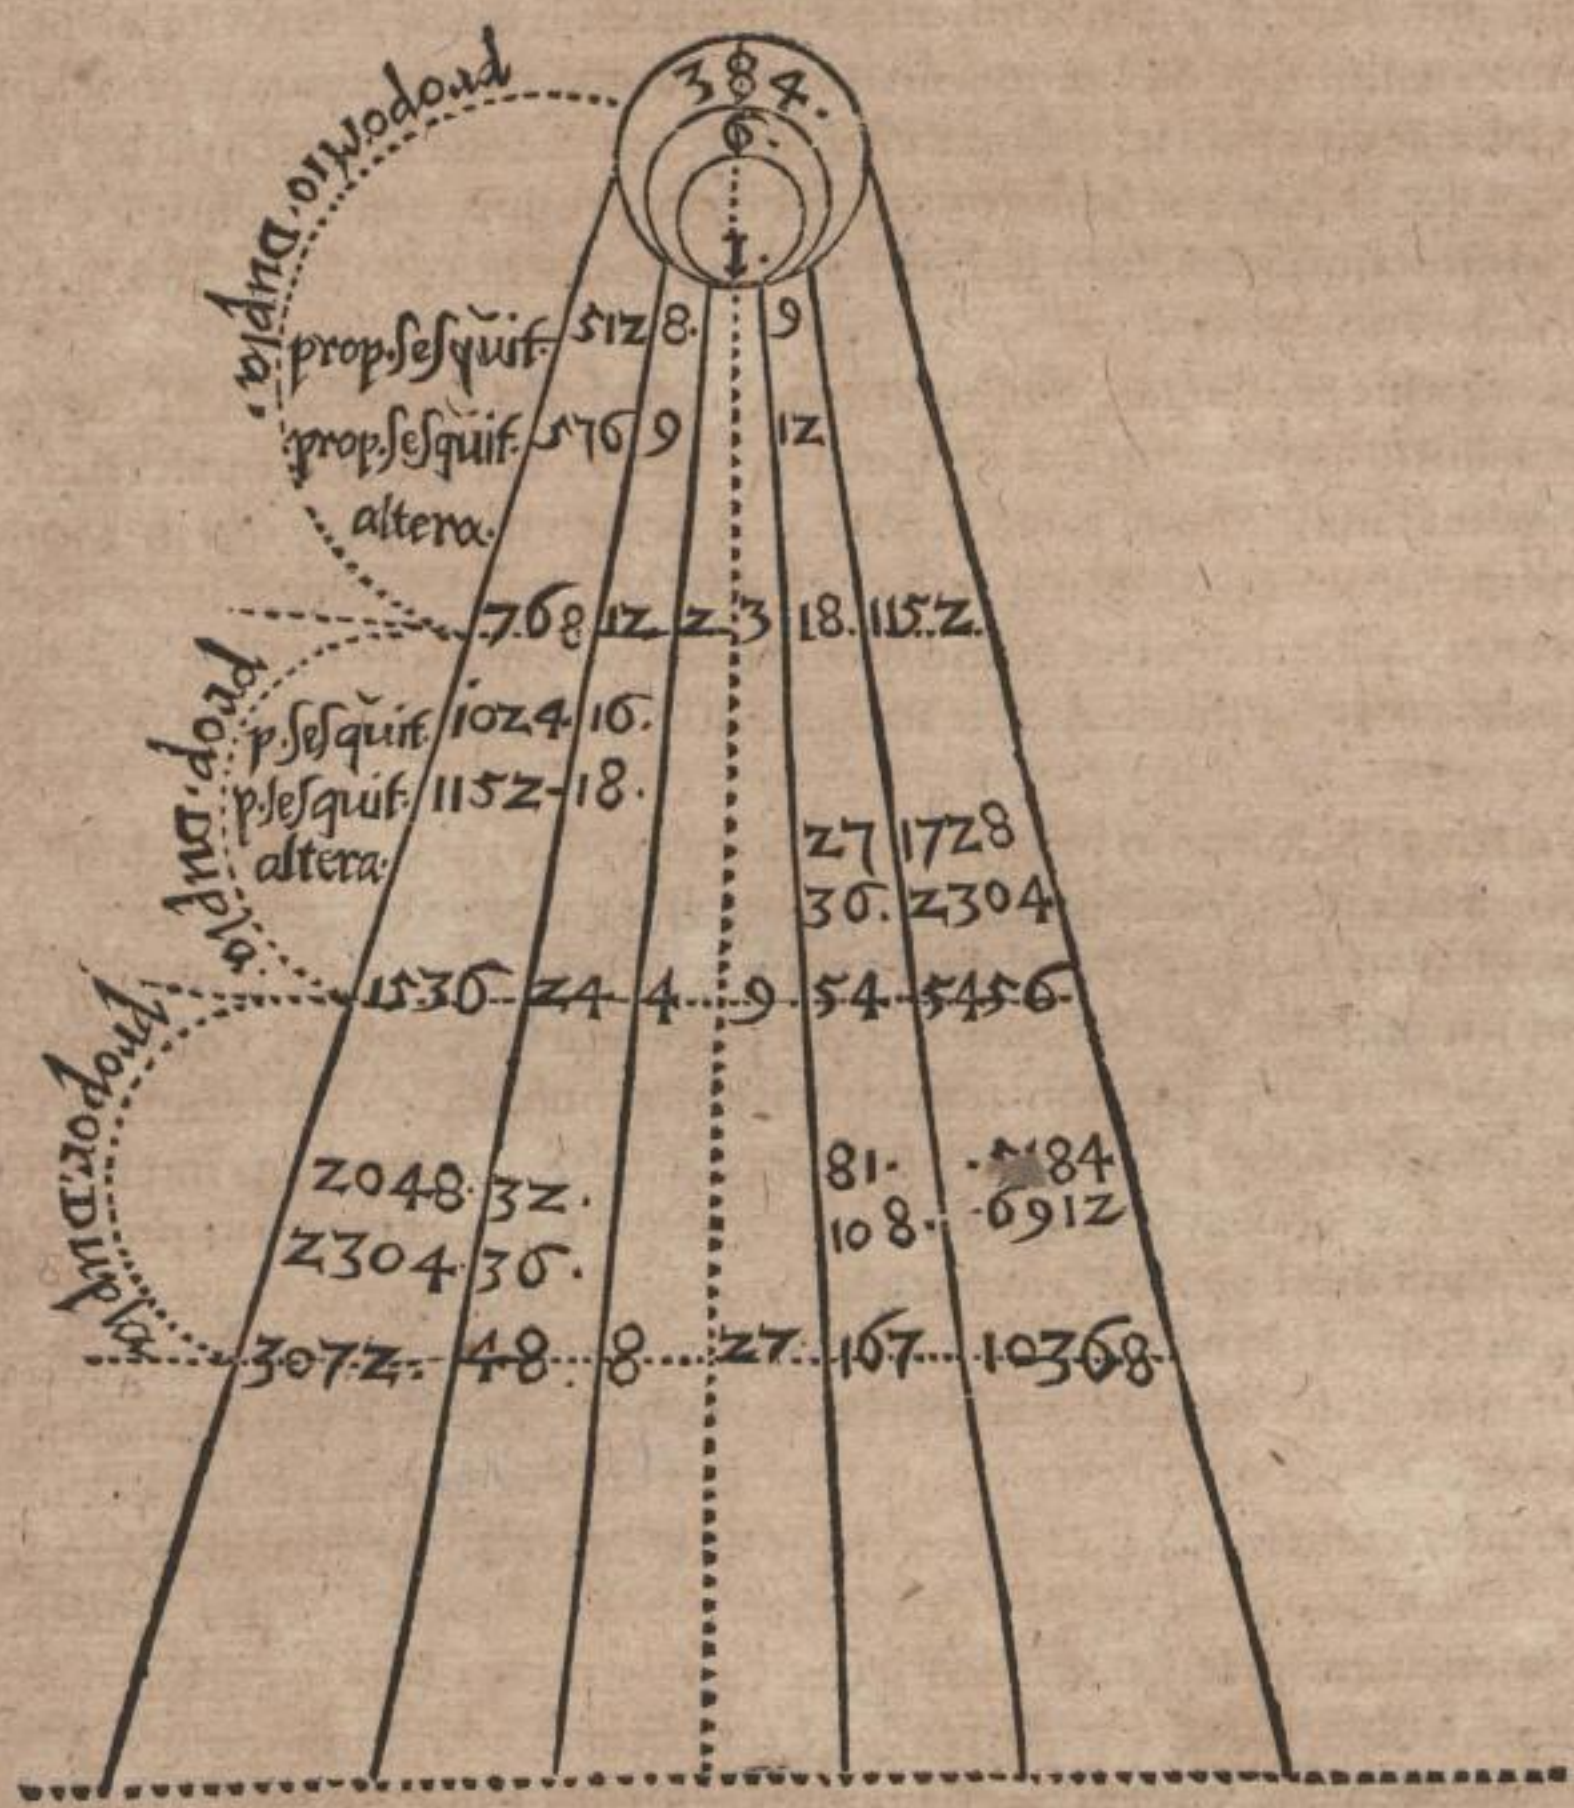 384.
6.
I.
proportio. Dupla.
prop.seſquit. 512 8. 9
prop.seſquit. 576 9 12
altera.
768 12 2 3 18. 1152.
prop. Dupla.
p.seſquit. 1024 16.
p.seſquit. 1152-18.
altera.
27 1728
36. 2304
1536 24 4 9 54 5456
propor. Dupla
2048. 32. 81.
108. 6912
2304. 36.
3072. 48. 8 27. 167 10368